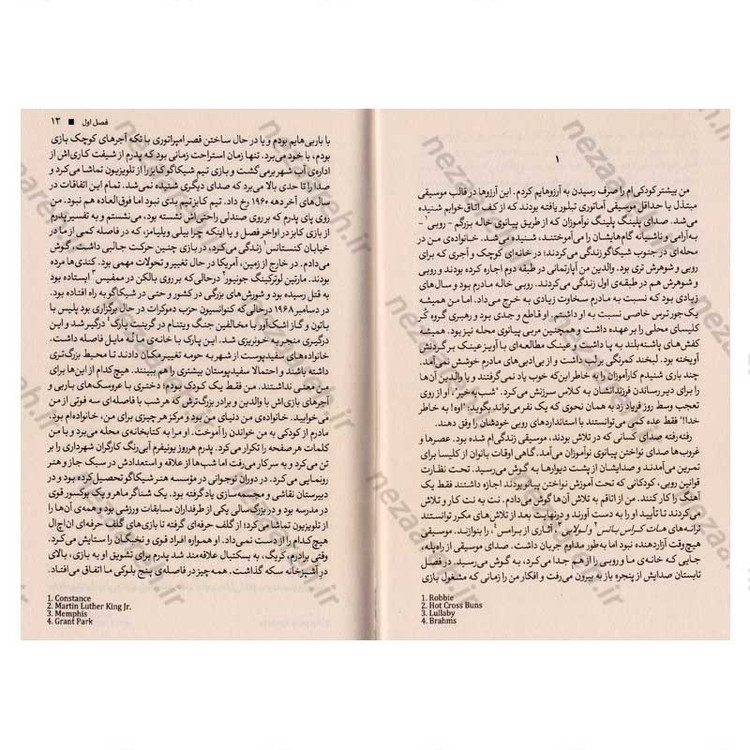 ۱
من بیشتر کودکی‌ام را صرف رسیدن به آرزوهایم کردم. این آرزوها در قالب موسیقی
مبتذل یا حداقل موسیقی آماتوری تبلور یافته بودند که از کف اتاق‌خوابم شنیده
می‌شد. صدای پلینگ پلینگ نوآموزان که از طریق پیانوی خاله بزرگم - روبی۱-
به‌آرامی و ناشیانه گام‌هایشان را می‌آموختند، شنیده می‌شد. خانواده‌ی من در
محله‌ای در جنوب شیکاگو زندگی می‌کردند؛ در خانه‌ای کوچک و آجری که برای
روبی و شوهرش تری بود. والدین من آپارتمانی در طبقه دوم اجاره کرده بودند و روبی
و شوهرش هم در طبقه‌ی اول زندگی می‌کردند. روبی خاله مادرم بود و سال‌های
زیادی بود که نسبت به مادرم سخاوت زیادی به خرج می‌داد. اما من همیشه
یک‌جور ترس خاصی نسبت به او داشتم. او قاطع و جدی بود و رهبری گروه کُر
کلیسای محلی را بر عهده داشت و همچنین مربی پیانوی محله نیز بود. همیشه
کفش‌های پاشنه‌بلند به پا داشت و عینک مطالعه‌ای با آویز عینک بر گردنش
آویخته بود. لبخند کمرنگی بر لب داشت و از بی‌ادبی‌های مادرم خوشش نمی‌آمد.
چند باری شنیدم کارآموزان را به خاطر این‌که خوب یاد نمی‌گرفتند و یا والدین آن‌ها
را برای دیر رساندن فرزندانشان به کلاس سرزنش می‌کرد. "شب به خیر"، او از روی
تعجب وسط روز فریاد زد به همان نحوی که یک نفر می‌تواند بگوید: "اوه! به خاطر
خدا!" فقط عده کمی می‌توانستند با استانداردهای روبی خودشان را وفق دهند.
رفته‌رفته صدای کسانی که در تلاش بودند، موسیقی زندگی‌ام شده بود. عصرها و
غروب‌ها صدای نواختن پیانوی نوآموزان می‌آمد. گاهی اوقات بانوان از کلیسا برای
تمرین می‌آمدند و صدایشان از پشت دیوارها به گوش می‌رسید. تحت نظارت
قوانین روبی، کودکانی که تحت آموزش نواختن پیانو بودند اجازه داشتند فقط یک
آهنگ را کار کنند. من از اتاقم به تلاش آن‌ها گوش می‌دادم. نت به نت کار و تلاش
می‌کردند تا تأیید او را به دست آورند و درنهایت بعد از تلاش‌های مکرر توانستند
ترانه‌های هات کراس بانس۲ و لولابی۳، آثاری از برامس۴ را بنوازند. موسیقی
هیچ‌وقت آزاردهنده نبود اما به‌طور مداوم جریان داشت. صدای موسیقی از راه‌پله،
جایی که خانه‌ی ما و روبی را از هم جدا می‌کرد، به گوش می‌رسید. در فصل
تابستان صدایش از پنجره باز به بیرون می‌رفت و افکار من را زمانی که مشغول بازی
1. Robbie
2. Hot Cross Buns
3. Lullaby
4. Brahms
فصل اول ■ ۱۳
با باربی‌هایم بودم و یا در حال ساختن قصر امپراتوری با تکه آجرهای کوچک بازی
بودم، با خود می‌برد. تنها زمان استراحت زمانی بود که پدرم از شیفت کاری‌اش از
اداره‌ی آب شهر برمی‌گشت و بازی تیم شیکاگو کابز را از تلویزیون تماشا می‌کرد و
صدا را تا حدی بالا می‌برد که صدای دیگری شنیده نمی‌شد. تمام این اتفاقات در
سال‌های آخر دهه ۱۹۶۰ رخ داد. تیم کابز تیم بدی نبود اما فوق‌العاده هم نبود. من
روی پای پدرم که بر روی صندلی راحتی‌اش نشسته بود، می‌نشستم و به تفسیر پدرم
از بازی کابز در اواخر فصل و یا اینکه چرا بیلی ویلیامز، که از ما در
خیابان کنستانس۱ زندگی می‌کرد، در بازی چنین حرکت جالبی داشت، گوش
می‌دادم. در خارج از زمین، آمریکا در حال تغییر و تحولات مهمی بود. کندی‌ها مرده
بودند. مارتین لوترکینگ جونیور۲ درحالی‌که بر روی بالکن در ممفیس۳ ایستاده بود
به قتل رسیده بود و شورش‌های بزرگی در کشور و حتی در شیکاگو به راه افتاده بود.
در دسامبر ۱۹۶۸ درحالی‌که کنوانسیون حزب دموکرات در حال برگزاری بود پلیس با
باتون و گاز اشک‌آور با مخالفین جنگ ویتنام در گرینت پارک۴ درگیر شد و این
درگیری منجر به خونریزی شد. این پارک با خانه‌ی ما مایل فاصله داشت.
خانواده‌های سفیدپوست از شهر به حومه تغییر مکان دادند تا محیط بزرگ‌تری
داشته باشند و احتمالا سفیدپوستان بیشتری را هم ببینند. هیچ‌کدام از این‌ها برای
من معنی نداشتند. من فقط یک کودک بودم؛ دختری با عروسک‌های باربی و
آجرهای بازی‌اش با والدین و برادر بزرگ‌ترش که هر شب با فاصله‌ی سه فوتی از من
می‌خوابید. خانواده‌ی من دنیای من بود و مرکز هر چیزی برای من، خانواده‌ام بود.
مادرم از کودکی به من خواندن را آموخت. او مرا به کتابخانه‌ی محله می‌برد و با من
کلمات هر صفحه را تکرار می‌کرد. پدرم هرروز یونیفرم آبی‌رنگ کارگران شهرداری را بر
تن می‌کرد و به سر کار می‌رفت اما شب‌ها از علاقه و استعدادش در سبک جاز و هنر
رونمایی می‌کرد. در دوران نوجوانی در مؤسسه هنر شیکاگو تحصیل کرده بود و در
دبیرستان نقاشی و مجسمه‌سازی یاد گرفته بود. یک شناگر ماهر و یک بوکسور قوی
در مدرسه بود و در بزرگ‌سالی یکی از طرفداران مسابقات ورزشی بود و همه‌ی آن‌ها را
از تلویزیون تماشا می‌کرد؛ از گلف حرفه‌ای گرفته تا بازی‌های حرفه‌ای ان‌اچ‌ال
هیچ‌کدام را از دست نمی‌داد. او همواره افراد قوی و نخبگان را ستایش می‌کرد.
وقتی برادرم، کریگ، به بسکتبال علاقه‌مند شد پدرم برای تشویق او به بازی، بالای
در آشپزخانه سکه گذاشت. همه‌چیز در فاصله‌ی پنج بلوکی ما اتفاق می‌افتاد.
1. Constance
2. Martin Luther King Jr.
3. Memphis
4. Grant Park
nezaareh.ir